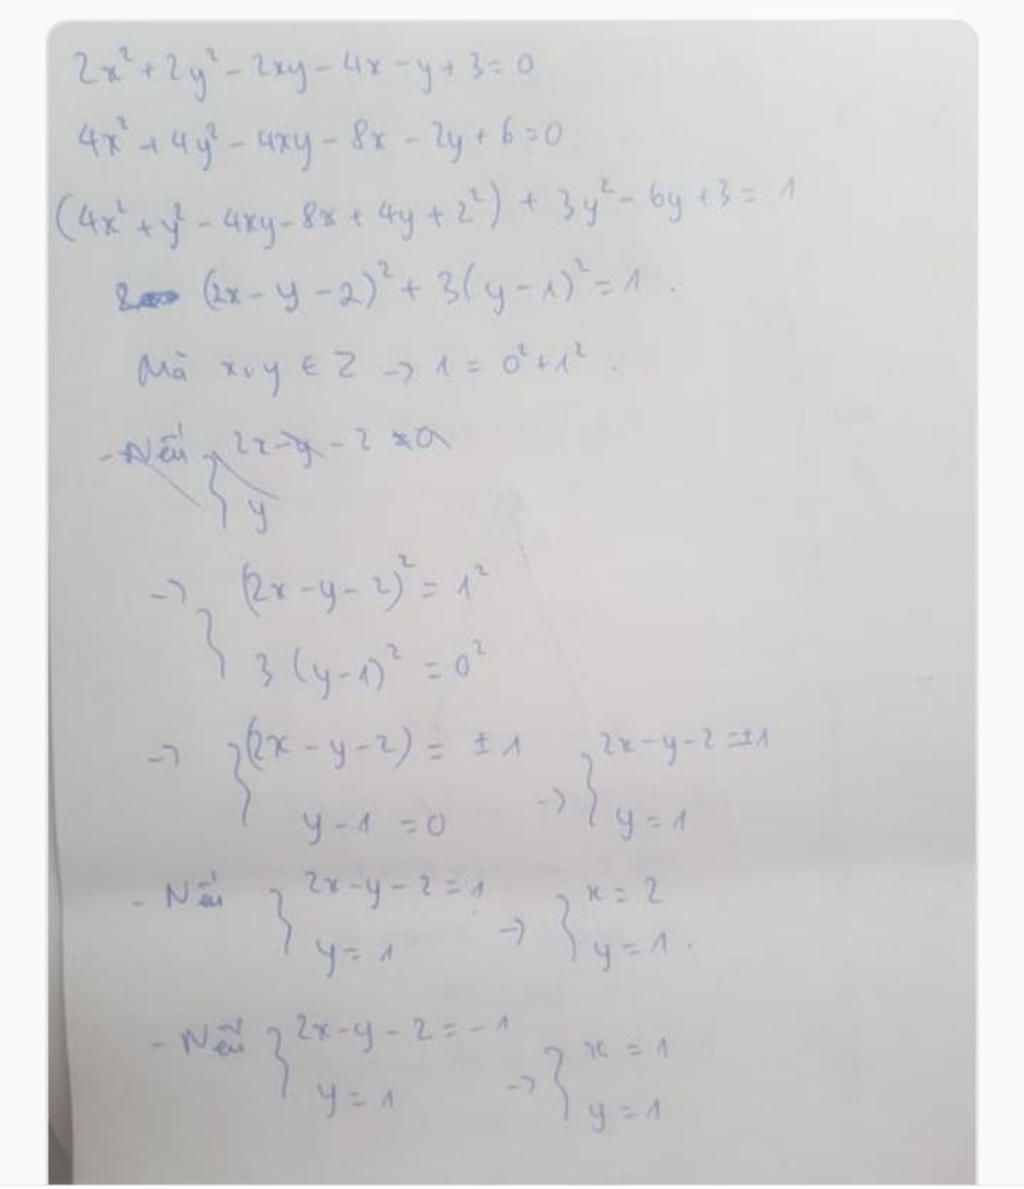 2x² + 2y² - 2xy - 4x - y + 3 = 0
4x² + 4y² - 4xy - 8x - 2y + 6 = 0
(4x² + y² - 4xy - 8x + 4y + 2²) + 3y² - 6y + 3 = 1
(2x - y - 2)² + 3(y - 1)² = 1.
Mà x, y ∈ Z → 1 = 0² + 1².
- Nếu { 2x - y - 2 = 0
y
→ { (2x - y - 2)² = 1²
3(y - 1)² = 0²
→ { (2x - y - 2) = ± 1 → { 2x - y - 2 = ±1
y - 1 = 0 y = 1
- Nếu { 2x - y - 2 = 1 → { x = 2
y = 1 y = 1.
- Nếu { 2x - y - 2 = -1 → { x = 1
y = 1 y = 1